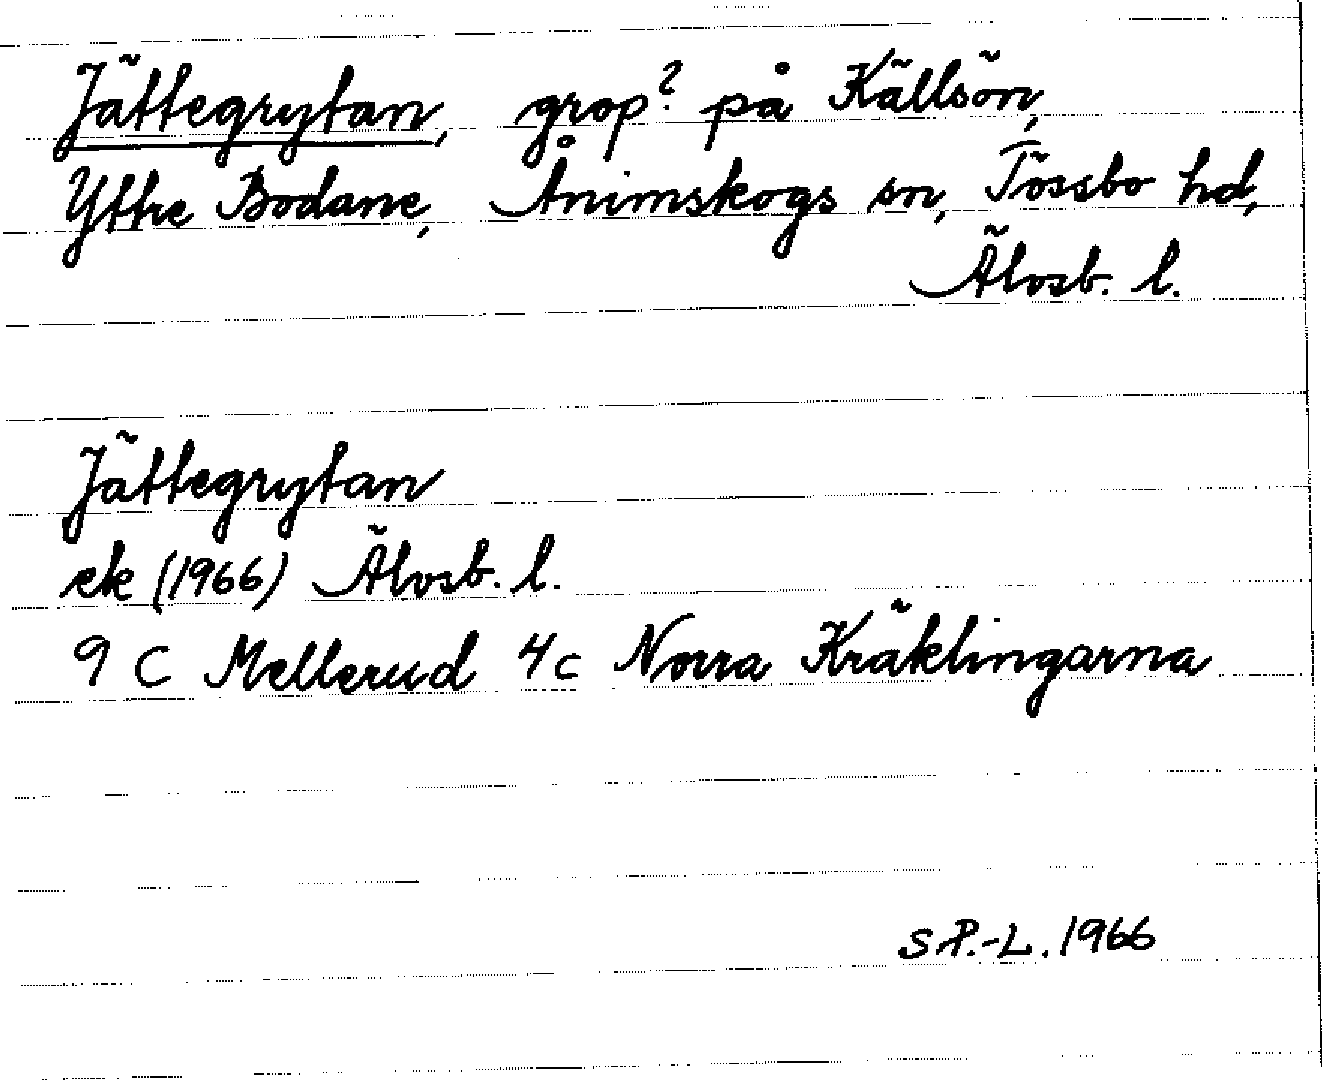 Jättegrytan, grop? på Källsön,
Yttre Bodane, Ånimskogs sn, Tössbo hd,
Älvsb. l.
Jättegrytan
ek (1966) Älvsb. l.
9 C Mellerud 4c Norra Kräklingarna
S P.-L. 1966